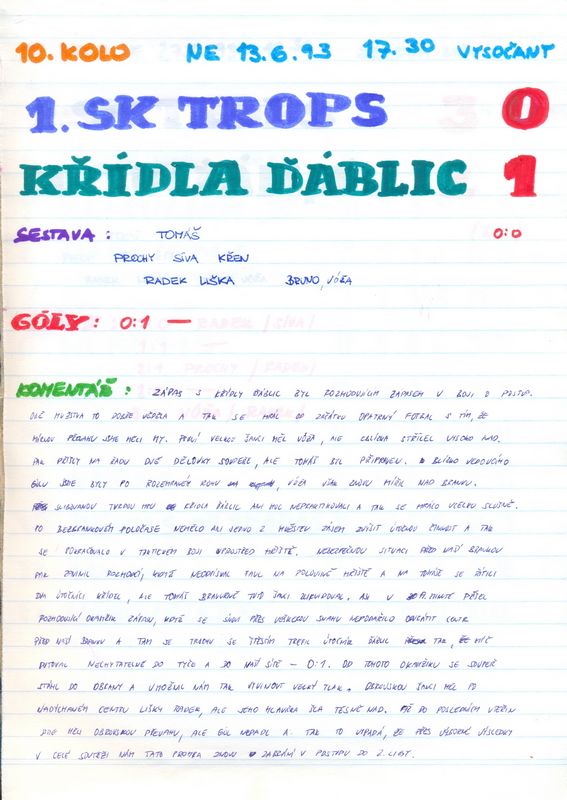 10. KOLO NE 13.6.93 17.30 VYSOČANY
1. SK TROPS 0
KŘÍDLA ĎÁBLIC 1
SESTAVA : TOMÁŠ 0:0
PROCHY SÍVA KŘEN
RADEK LIŠKA BRUNO, VÓŽA
GÓLY : 0:1 —
KOMENTÁŘ : ZÁPAS S KŘÍDLY ĎÁBLIC BYL ROZHODUJÍCÍM ZÁPASEM V BOJI O POSTUP.
OBĚ MUŽSTVA TO DOBŘE VĚDĚLA A TAK SE HRÁL OD ZAČÁTKU OPATRNÝ FOTBAL S TÍM, ŽE
MÍRNOU PŘEVAHU JSME MĚLI MY. PRVNÍ VELKOU ŠANCI MĚL VÓŽA, ALE STŘÍLEL VYSOKO NAD.
PAK PŘIŠLY NA ŘADU DVĚ DĚLOVKY SOUPEŘE, ALE TOMÁŠ BYL PŘIPRAVEN. BLÍZKO VEDOUCÍHO
GÓLU JSME BYLY PO ROZEHRANÉM ROHU, VÓŽA VŠAK ZNOVU MÍŘIL NAD BRANKU.
SLIBOVANOU TVRDOU HRU KŘÍDLA ĎÁBLIC ANI MOC NEPRAKTIKOVALI A TAK SE HRÁLO VCELKU SLUŠNĚ.
PO BEZBRANKOVÉM POLOČASE NEMĚLO ANI JEDNO Z MUŽSTEV ZÁJEM ZVÝŠIT ÚTOČNOU ČINNOST A TAK
SE POKRAČOVALO V TAKTICKÉM BOJI UPROSTŘED HŘIŠTĚ. NEBEZPEČNOU SITUACI PŘED NAŠÍ BRANKOU
PAK ZAVINIL ROZHODČÍ, KDYŽ NEODPÍSKAL FAUL NA POLOVINĚ HŘIŠTĚ A NA TOMÁŠE SE ŘÍTILI
DVA ÚTOČNÍCI KŘÍDEL, ALE TOMÁŠ BRAVURNĚ TUTO ŠANCI ZLIKVIDOVAL. AŽ V MINUTĚ PŘIŠEL
ROZHODUJÍCÍ OKAMŽIK ZÁPASU, KDYŽ SE SÍVOVI PŘES VEŠKEROU SNAHU NEPODAŘILO ODVRÁTIT CENTR
PŘED NAŠÍ BRANKU A TAM SE TROCHU SE ŠTĚSTÍM TREFIL ÚTOČNÍK ĎÁBLIC TAK, ŽE MÍČ
PUTOVAL NECHYTATELNĚ DO TYČE A DO NAŠÍ SÍTĚ — 0:1. OD TOHOTO OKAMŽIKU SE SOUPEŘ
STÁHL DO OBRANY A UMOŽNIL NÁM TAK VYVINOUT VELKÝ TLAK. OBROVSKOU ŠANCI MĚL PO
NADÝCHANÉM CENTRU LIŠKY RADEK, ALE JEHO HLAVIČKA ŠLA TĚSNĚ NAD. AŽ DO POSLEDNÍCH VTEŘIN
JSME MĚLI OBROVSKOU PŘEVAHU, ALE GÓL NEPADL A TAK TO VYPADÁ, ŽE PŘES VÝBORNÉ VÝSLEDKY
V CELÉ SOUTĚŽI NÁM TATO PROHRA ZNOVU ZABRÁNÍ V POSTUPU DO 2. LIGY.